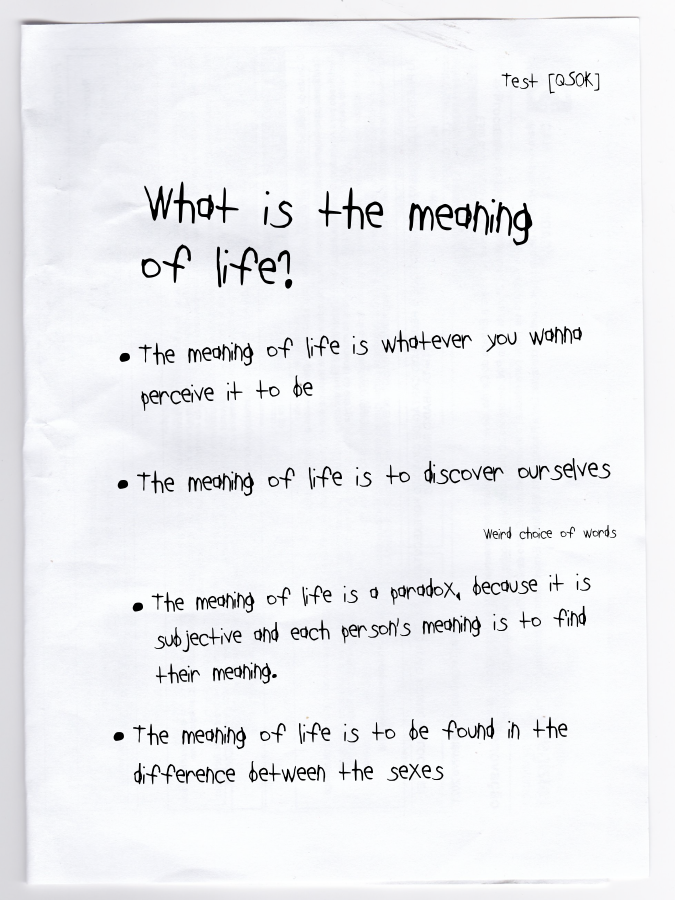 Test [QSOK]
What is the meaning
of life?
• The meaning of life is whatever you wanna
perceive it to be
• The meaning of life is to discover ourselves
Weird choice of words
• The meaning of life is a paradox, because it is
subjective and each person's meaning is to find
their meaning.
• The meaning of life is to be found in the
difference between the sexes